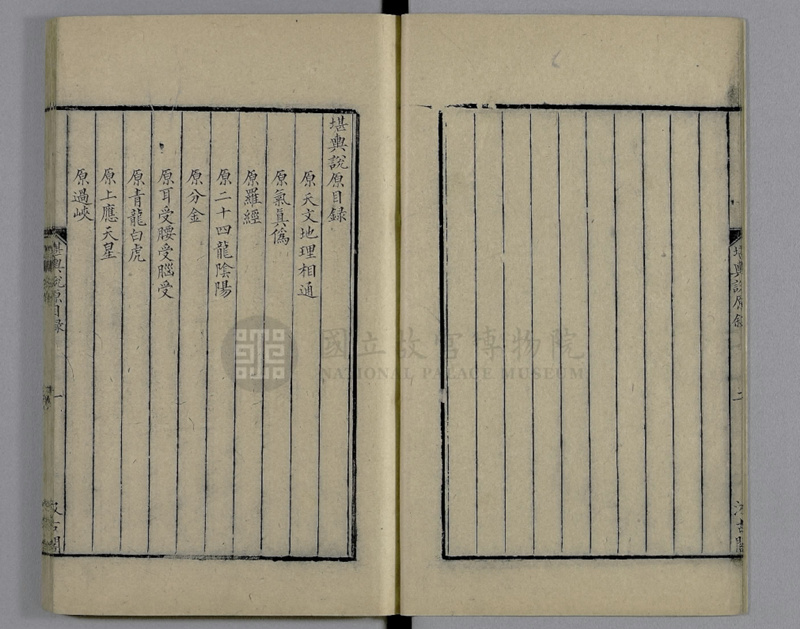 堪輿說原目録
原天文地理相通
原氣真僞
原羅經
原二十四龍陰陽
原分金
原耳受腰受腦受
原青龍白虎
原上應天星
原過峽
堪輿說原目録
一
汲古閣
堪輿說原
二
汲古閣
國立故宮博物院
NATIONAL PALACE MUSEUM